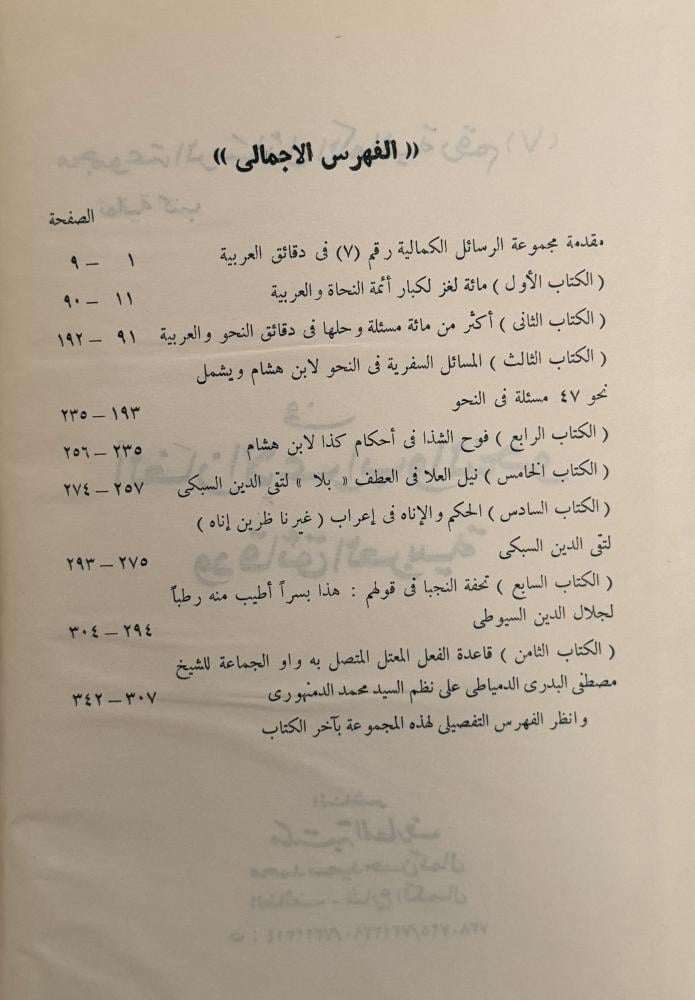 (( الفهرس الاجمالى ))
الصفحة
مقدمة مجموعة الرسائل الكمالية رقم (٧) فى دقائق العربية ١ – ٩
( الكتاب الأول ) مائة لغز لكبار أئمة النحاة والعربية ١١ – ٩٠
( الكتاب الثانى ) أكثر من مائة مسئلة وحلها فى دقائق النحو والعربية ٩١ – ١٩٢
( الكتاب الثالث ) المسائل السفرية فى النحو لابن هشام ويشمل
نحو ٤٧ مسئلة فى النحو ١٩٣ – ٢٣٥
( الكتاب الرابع ) فوح الشذا فى أحكام كذا لابن هشام ٢٣٥ – ٢٥٦
( الكتاب الخامس ) نيل العلا فى العطف « بلا » لتقى الدين السبكى ٢٥٧ – ٢٧٤
( الكتاب السادس ) الحكم والإناه فى إعراب ( غير ناظرين إناه )
لتقى الدين السبكى ٢٧٥ – ٢٩٣
( الكتاب السابع ) تحفة النجبا فى قولهم : هذا بسراً أطيب منه رطباً
لجلال الدين السيوطى ٢٩٤ – ٣٠٤
( الكتاب الثامن ) قاعدة الفعل المعتل المتصل به واو الجماعة للشيخ
مصطفى البدرى الدمياطى على نظم السيد محمد الدمنهورى ٣٠٧ – ٣٤٢
وانظر الفهرس التفصيلى لهذه المجموعة بآخر الكتاب